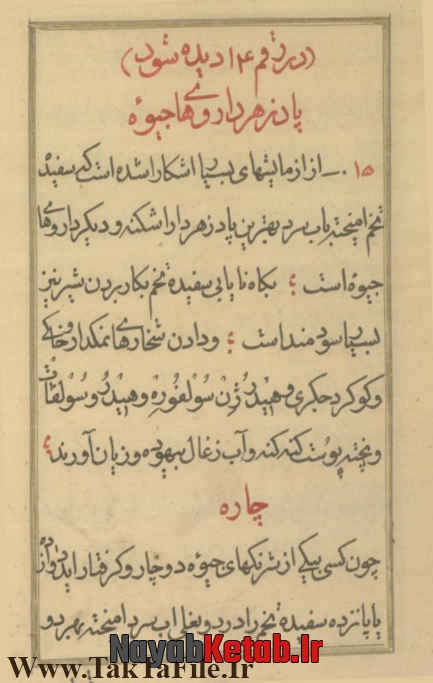 (در رقم ۱۴ دیده شود)
پادزهر داروهای جیوه
۱۵ .ـ از ازمایشهای بسیار اشکارا شده است که سفیده
تخم امیخته باب سرد بهترین پادزهر دارا شکنه و دیگر داروهای
جیوه است ؛ بگاه نایابی سفیده تخم بکار بردن شیر نیز
بسیار سودمند است ؛ و دادن شخارهای نمکدار خاکی
و کوکرد جکری و هیدرژن سولفوره و هیدروسولفات
و پخته پوست کنه کنه و آب زغال بیهوده و زیان آورند ؛
چاره
چون کسی بیکی از شرنکهای جیوه دوچار و کرفتار اید دوازده
یا پانزده سفیده تخم را در دو بغلی اب سرد امیخته بهر دو
NayabKetab.ir
Www.TakTaFile.ir